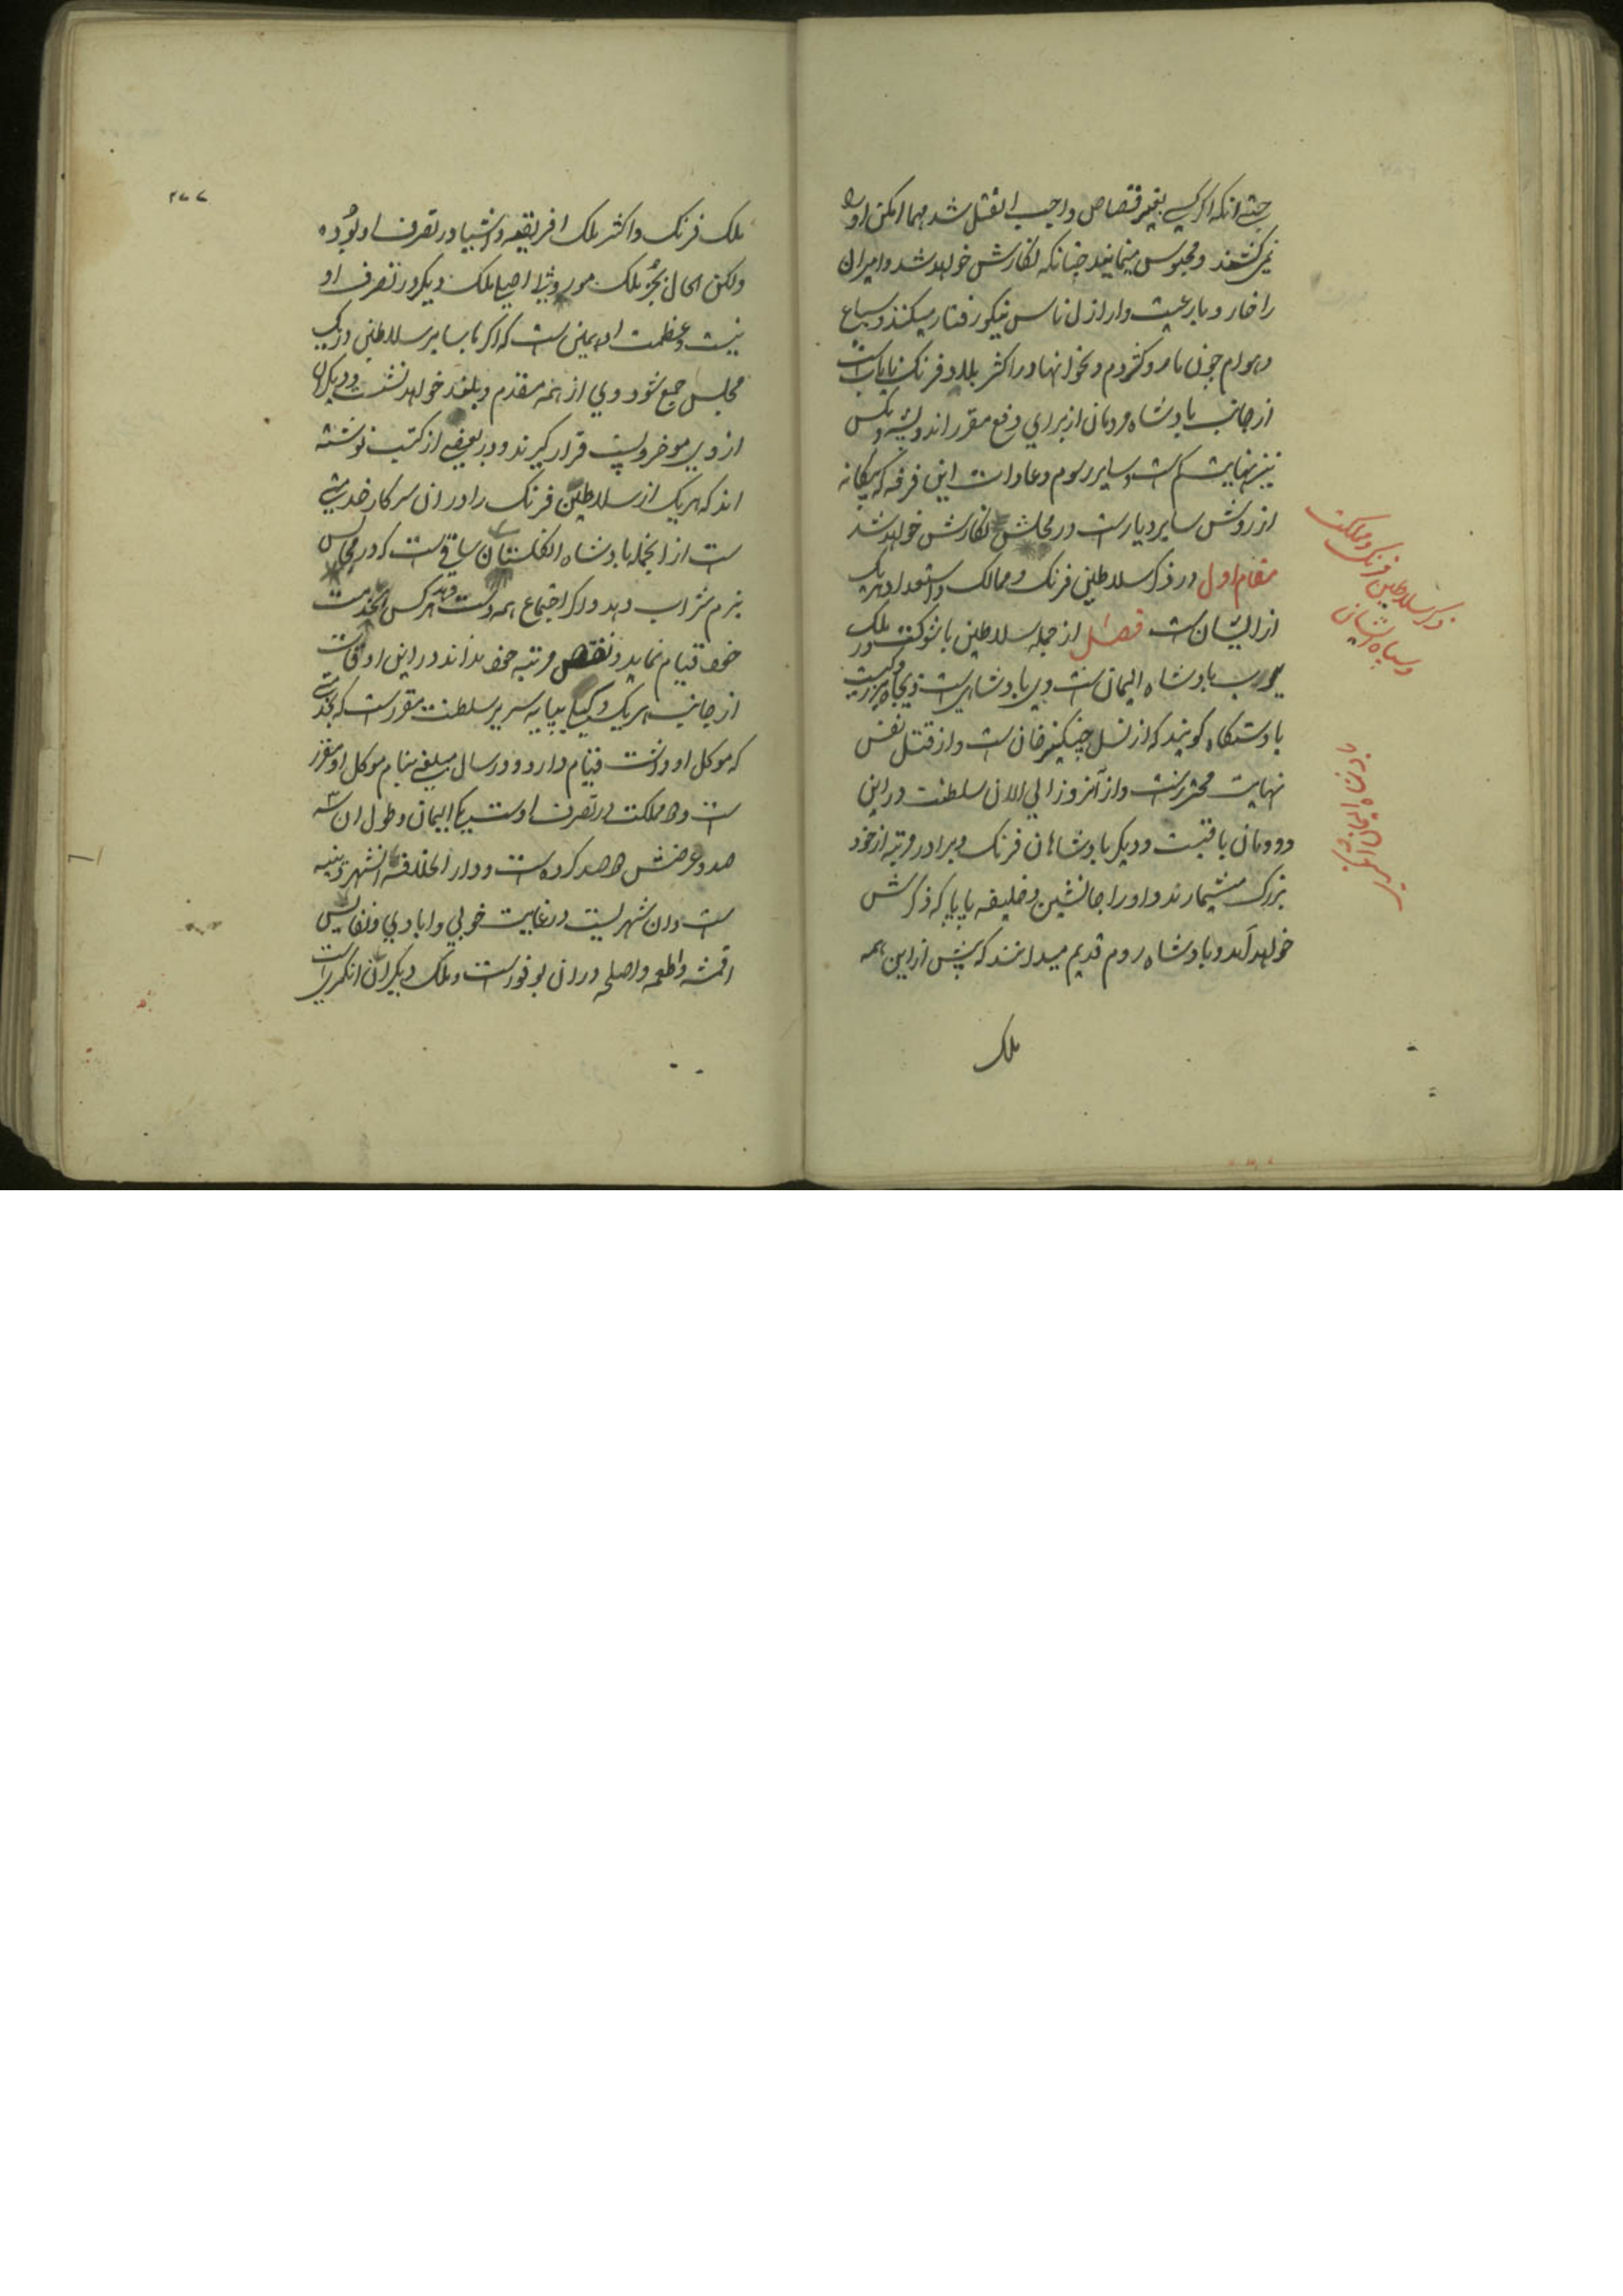 حتی انکه اگر کسی بغیر قصاص واجب القتل شد مهما امکن او را
نمی کشند و محبوس مینمایند چنانکه نگارش خواهد شد و امیران
را خار و با رعیت و ارازل ناس نیکو رفتار میکنند و سباع
و هوام چون مار و کژدم و نحو انها در اکثر بلاد فرنک نایاب است
از جانب پادشاه مردمان از برای دفع مقرر اند و پشه و مکس
نیز بنهایت کم است و سایر رسوم و عادات این فرقه که بیکانه
از روش سایر دیار است در محلش نگارش خواهد شد
مقام اول در ذکر سلاطین فرنک و ممالک و استعداد هر یک
از ایشان است فصل از جمله سلاطین با شوکت در ملک
یورب پادشاه الیمان است وی پادشاهی است ذیجاه
با دستکاه کویند که از نسل چنکیز خان است و از قتل نفس
نهایت محترز است و از آنروز الی الان سلطنت در این
دودمان باقیست و دیکر پادشاهان فرنک ویرا در مرتبه از خود
بزرک میشمارند و او را جانشین و خلیفه پاپا که ذکرش
خواهد آمد و پادشاه روم قدیم میدانند که پیش از این همه
ملک
ذکر سلاطین فرنک و مملکت
و سپاه ایشان
۲۷۷
ملک فرنک و اکثر ملک افریقیه و اشیا در تصرف او بوده
ولکن الحال بجز ملک موروثی اصلا ملک دیکر در تصرف او
نیست و عظمت او همین است که اگر با سایر سلاطین در یک
مجلس جمع شود وی از همه مقدم و بلند خواهد نشست و دیکرها
از وی موخر و پست قرار کیرند و در بعضی از کتب نوشته
اند که هر یک از سلاطین فرنک را در ان سرکار خدمتی
ست از انجمله پادشاه انکلستان ساقی ست که در مجالس
بزم شراب دهد و اگر اجتماع همه دست دهد هر کس بخدمت
خود قیام نماید و نقص مرتبه خود نداند در این اوقات
از جانب هر یک وکیلی بپایه سریر سلطنت مقرر است که بخدمتی
که موکل او داشت قیام دارد و در سال مبلغی بنام موکل او مقرر
ست و مملکت در تصرف اوست یکی الیمان و طول ان سه
صد و عرضش صد کروه است و دار الخلافه اش شهر وینیه
ست و ان شهریست در غایت خوبی و ابادی و نفایس
اقمشه و اطعمه و اصلحه در ان بوفور است و ملک دیکر ان انکری است